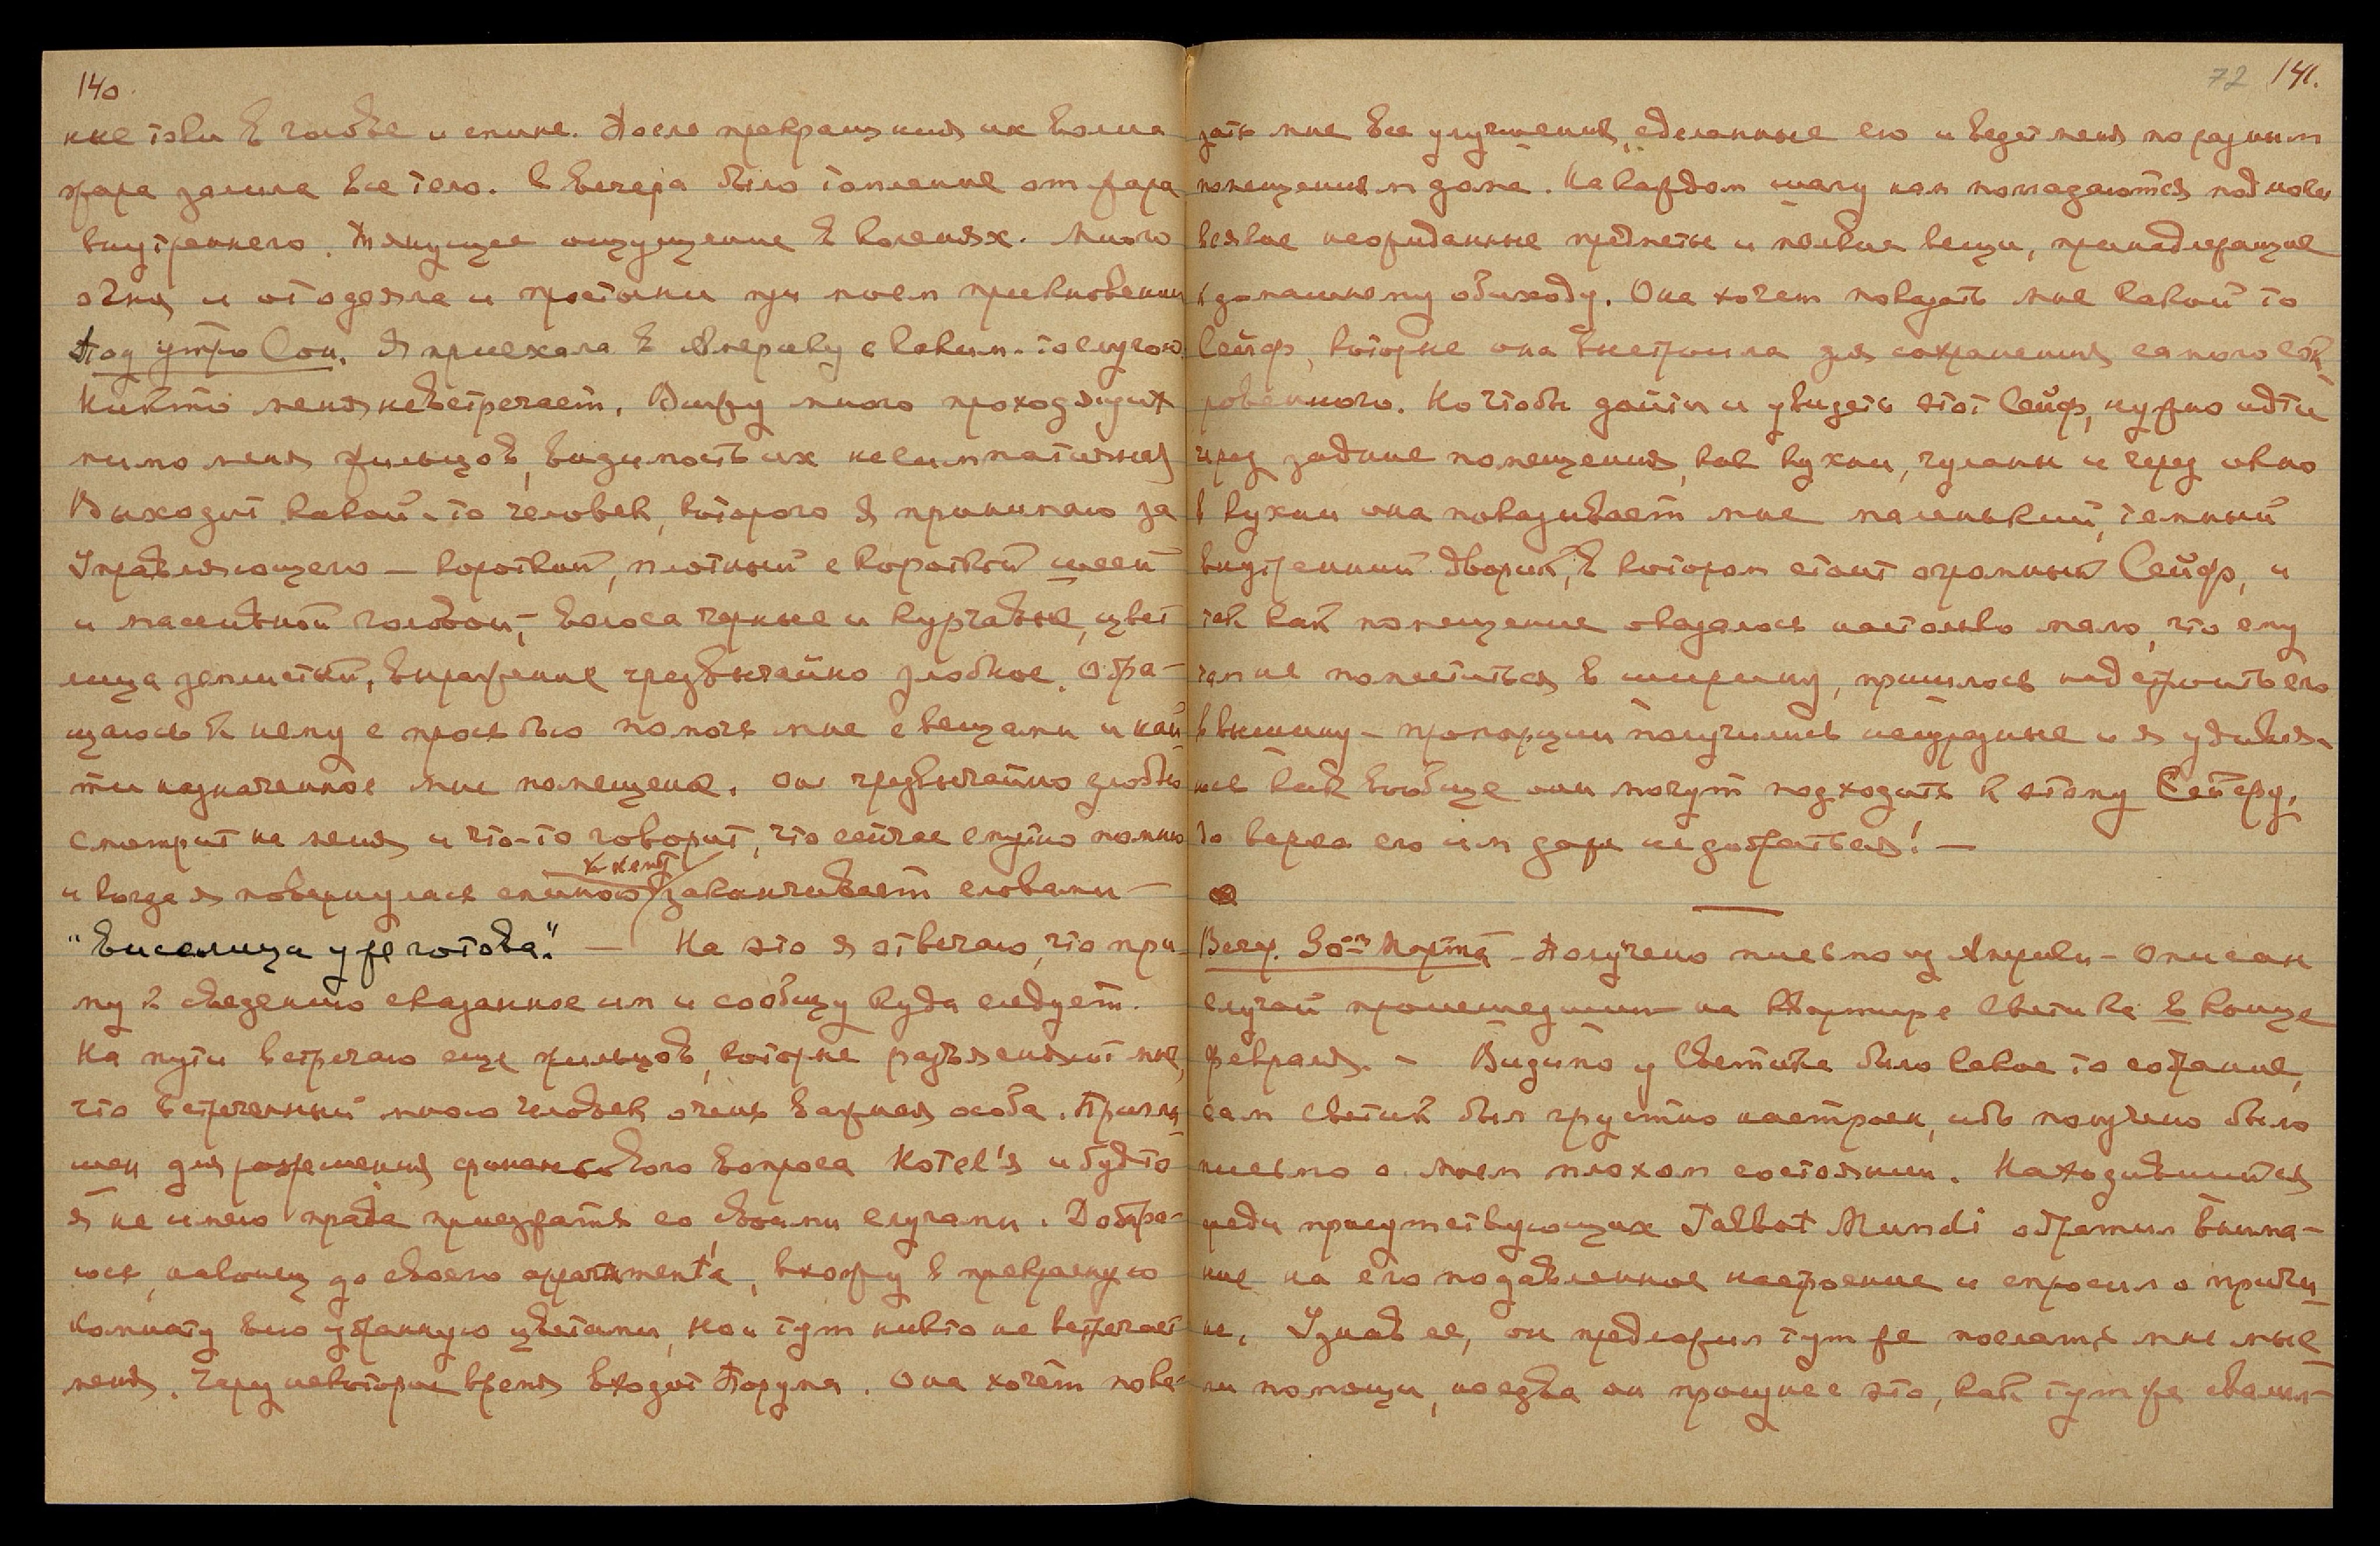 140.
ние токи в голове и спине. После прекращения их волна
жара залила все тело. С вечера было томление от жара
внутреннего. Тянущее ощущение в коленях. Много
огня и от одеяла и простыни при моем прикновении
Под утро Сон. Я приехала в Америку с каким-то слугою
Никто меня не встречает. Вижу много проходящих
мимо меня жильцов, видимость их несимпатичная
Выходит какой-то человек, которого я принимаю за
Управляющего — короткий, плотный с короткой шеей
и массивной головой, волоса черные и курчавые, цвет
лица землистый, выражение чрезвычайно злобное. Обра-
щаюсь к нему с просьбою помочь мне с вещами и най-
ти назначенное мне помещение. Он чрезвычайно злобно
смотрит на меня и что-то говорит, что сейчас смутно помню
к нему
и когда я повернулась спиною заканчивает словами —
"Виселица уже готова." — На это я отвечаю, что при-
му к сведению сказанное им и сообщу куда следует.
На пути встречаю еще жильцов, которые разъясняют мне,
что встреченный мною человек очень важная особа. Пригла-
шен для разрешения финансового вопроса Hotel'я и будто
я не имею права приезжать со своими слугами. Добра-
юсь, наконец до своего appartment'а, вхожу в прекрасную
комнату всю убранную цветами, но и тут никто не встречает
меня. Через некоторое время входит Порума. Она хочет пока-
72 141.
зать мне все улучшения, сделанные ею и ведет меня по разным
помещениям дома. На каждом шагу нам попадаются под ноги
всякие неожиданные предметы и мелкие вещи, принадлежащие
к домашнему обиходу. Она хочет показать мне какой то
Сейф, которые она выстроила для сохранения самого сок-
ровенного. Но чтобы дойти и увидеть этот Сейф, нужно идти
через задние помещения, как кухни, чуланы и через окно
в кухни она показывает мне маленький, темный
внутренний дворик, в котором стоит огромный Сейф, и
так как помещение оказалось настолько мало, что ему
там не поместиться в ширину, пришлось надстроить его
в вышину — пропорции получились несуразные и я удивля-
юсь как вообще они могут подходить к этому Сейфу,
до верха его им даже не добраться! —
Воскр. 30ое Марта Получено письмо из Америки — Описан
случай происшедший на квартире Светика в конце
февраля. — Видимо у Светика было какое то собрание,
сам Светик был грустно настроен, ибо получено было
письмо о моем плохом состоянии. Находившийся
среди присутствующих Talbot Mundi обратил внима-
ние на его подавленное настроение и спросил о причи-
не. Узнав ее, он предложил тут же послать мне мыс-
ли помощи, но едва он произнес это, как тут же свалил-